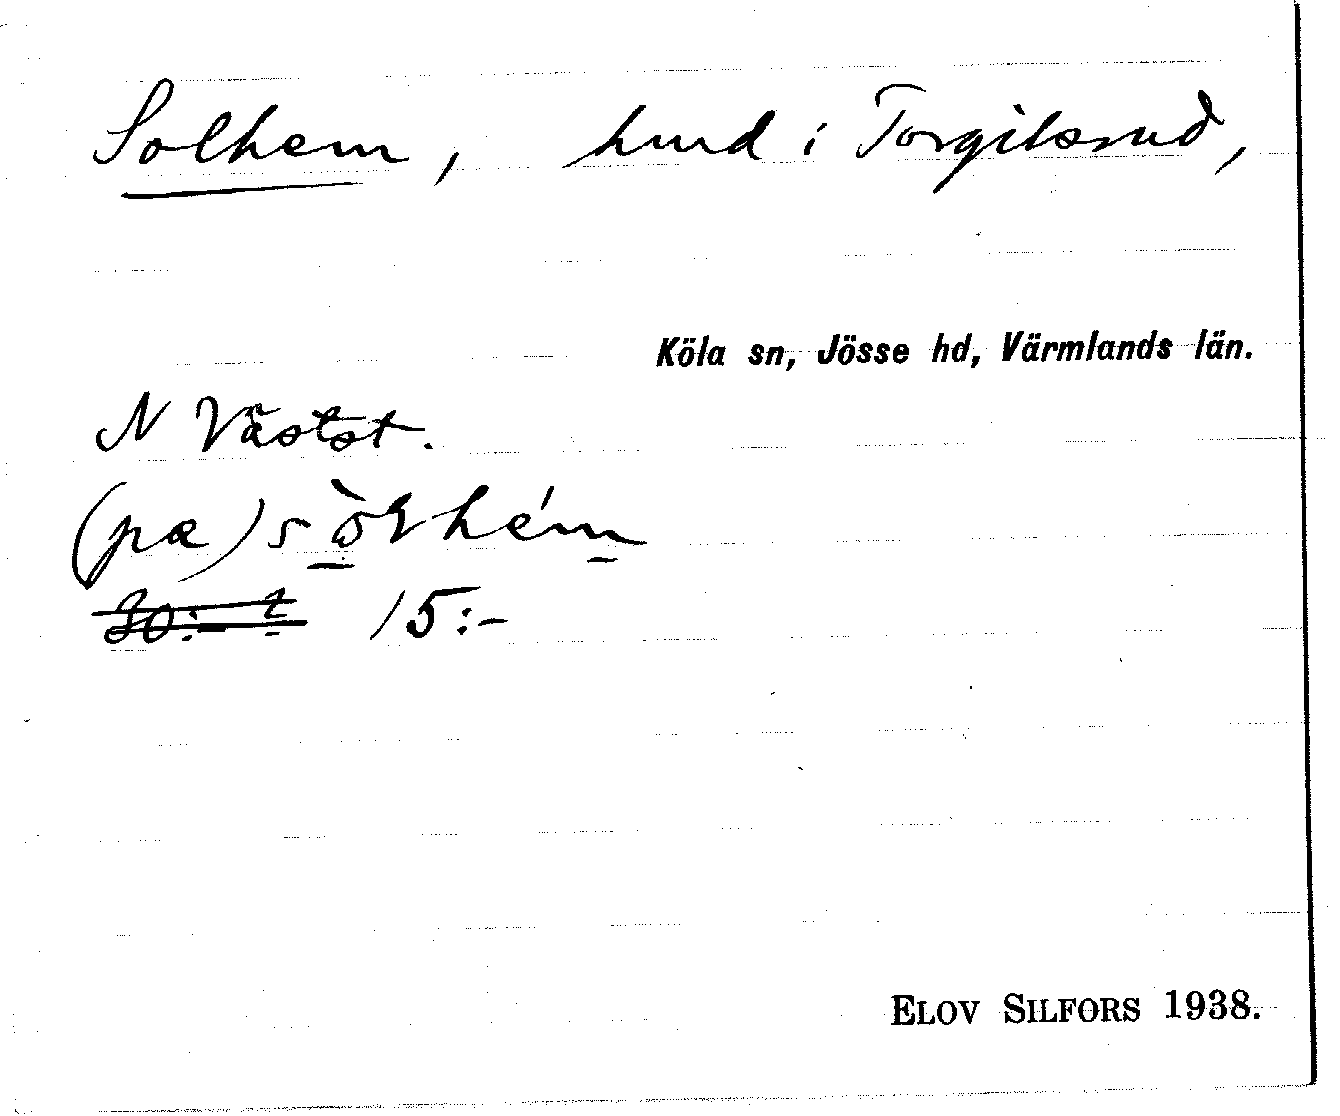 Solhem, hmd i Torgilsrud,
Köla sn, Jösse hd, Värmlands län.
N Västst.
(pæ) sòlhém
30:- 15:-
ELOV SILFORS 1938.